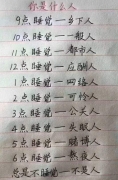 你是什么人
9点睡觉—乡下人
10点睡觉—一般人
11点睡觉—都市人
12点睡觉—应酬人
1点睡觉—网络人
2点睡觉—可怜人
3点睡觉—公关人
4点睡觉—失眠人
5点睡觉—赌博人
6点睡觉—熬夜人
总是不睡觉—不是人